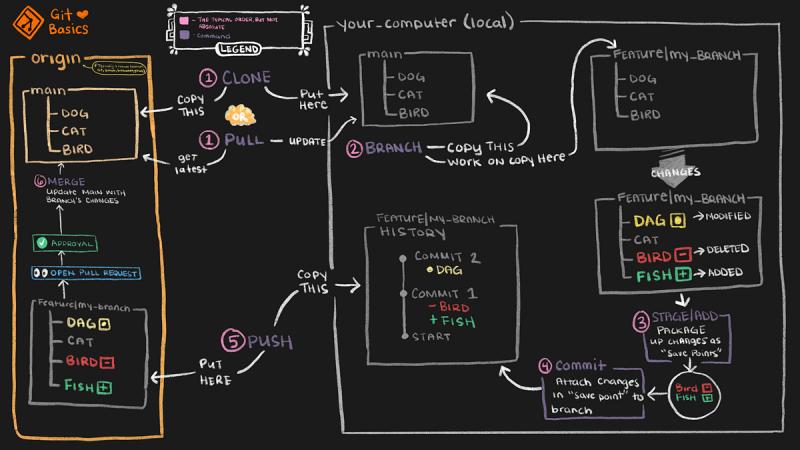 Git
Basics
- THE TYPICAL ORDER, BUT NOT
ABSOLUTE
- Command
LEGEND
origin
main
DOG
CAT
BIRD
6 MERGE
UPDATE MAIN WITH
BRANCH'S CHANGES
APPROVAL
OPEN PULL REQUEST
Feature/my-branch
DAG
CAT
BIRD
FISH
1 CLONE
COPY
THIS
Put
Here
OR
1 PULL
UPDATE
get
latest
your_computer (local)
main
DOG
CAT
BIRD
2 BRANCH
COPY THIS
WORK ON COPY Here
FEATURE/my_BRANCH
DOG
CAT
BIRD
CHANGES
FEATURE/my_BRANCH
DAG MODIFIED
CAT
BIRD DELETED
FISH ADDED
3 STAGE/ADD
PACKAGE
UP CHANGES AS
"SAVE POINTS"
Bird
FISH
4 Commit
Attach changes
in "save point" to
branch
FEATURE/my-BRANCH
HISTORY
COMMIT 2
DAG
COMMIT 1
- BIRD
+ FISH
START
COPY
THIS
5 PUSH
PUT
HERE